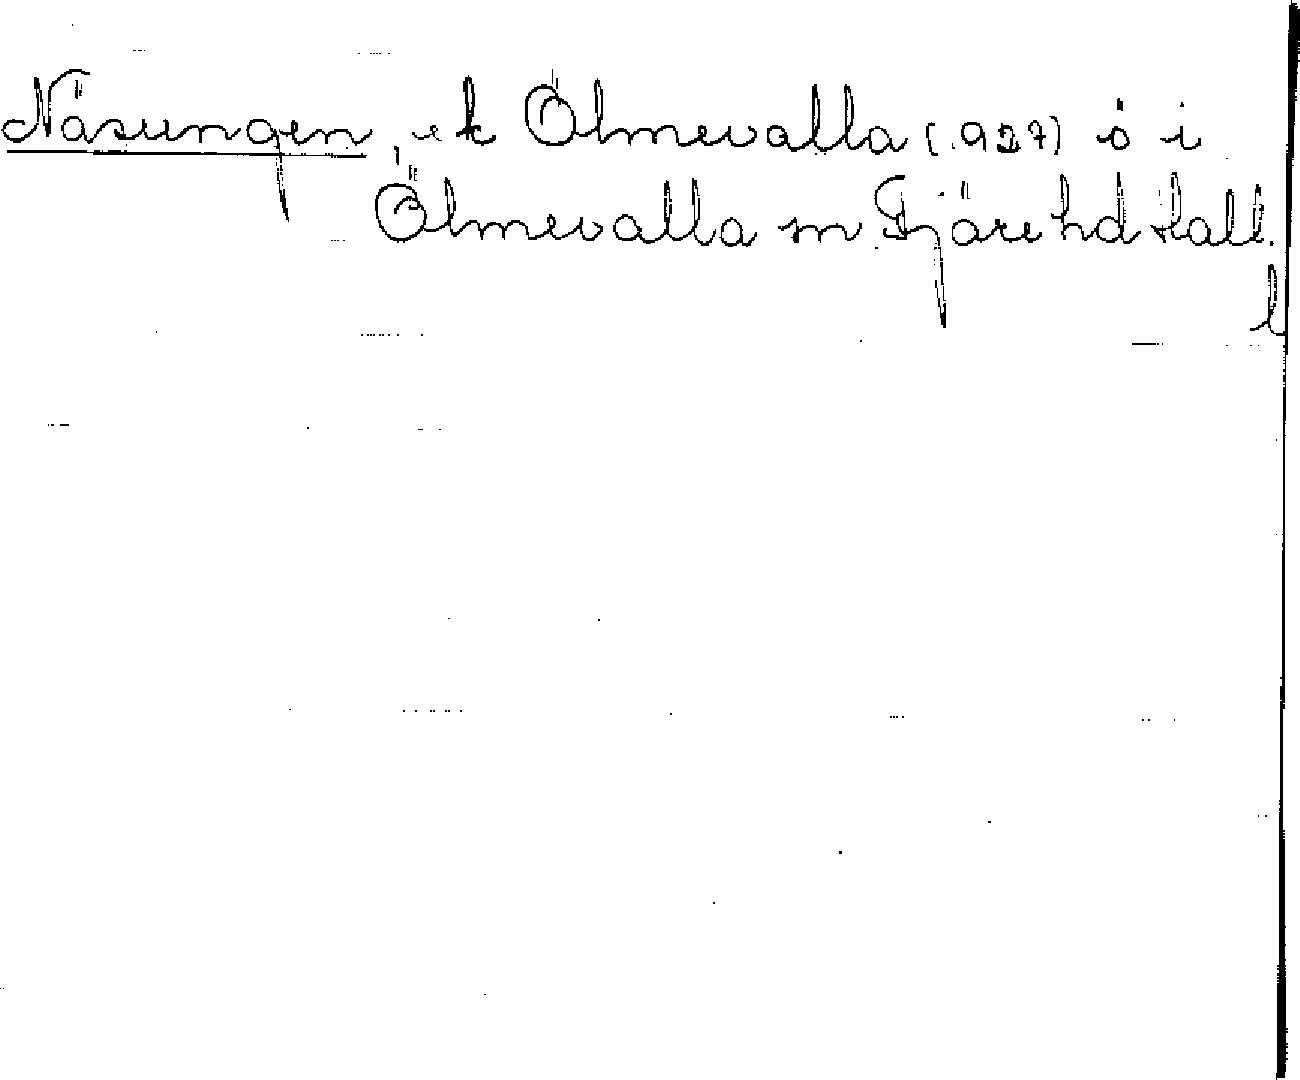 Näsungen, ek Ölmevalla (1927) ö i
Ölmevalla sn Fjäre hd Hall.
l